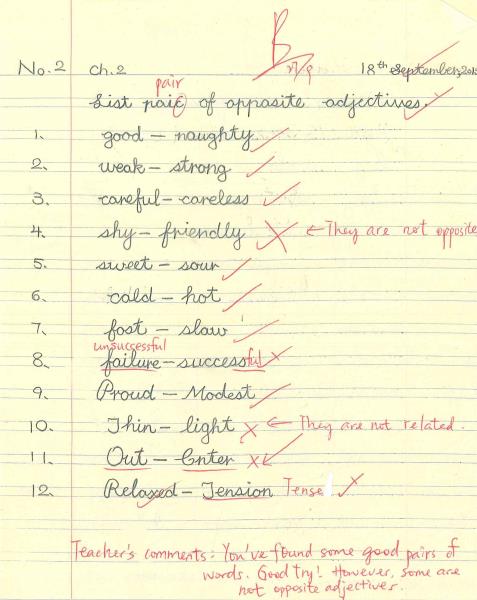 B
17/9
No.2 Ch.2 18th September, 201
pair
List paic of opposite adjectives.
1. good – naughty
2. weak – strong
3. careful – careless
4. shy – friendly ← They are not opposite
5. sweet – sour
6. cold – hot
7. fast – slow
unsuccessful
8. failure – successful
9. Proud – Modest
10. Thin – light ← They are not related.
11. Out – Enter
12. Relaxed – Tension Tense
Teacher's comments: You've found some good pairs of
words. Good try! However, some are
not opposite adjectives.